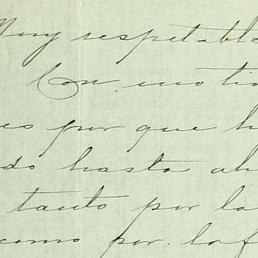 Muy respetabl
Con motiv
es por que h
do hasta ah
tanto por la
como por la f